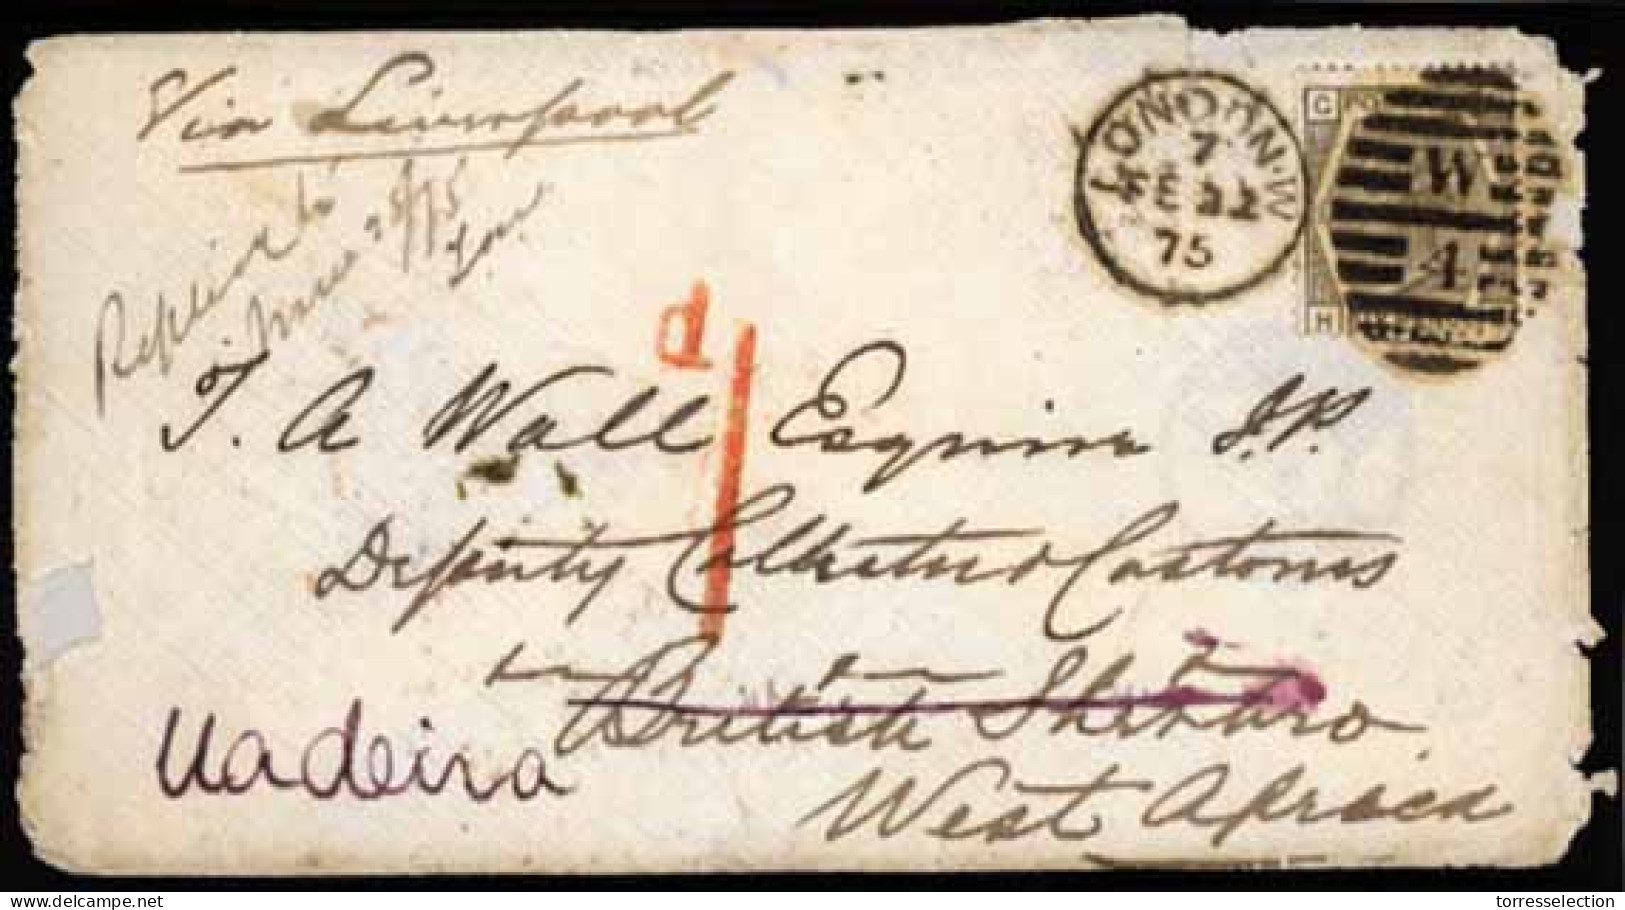 Via Liverpool
LONDON·W
7
FE 22
75
G
W
A
H
Replied to
d
1
T. A Wall Esquire J.P.
Deputy Collector Customs
British Sherbro
West Africa
Madeira
torresselection